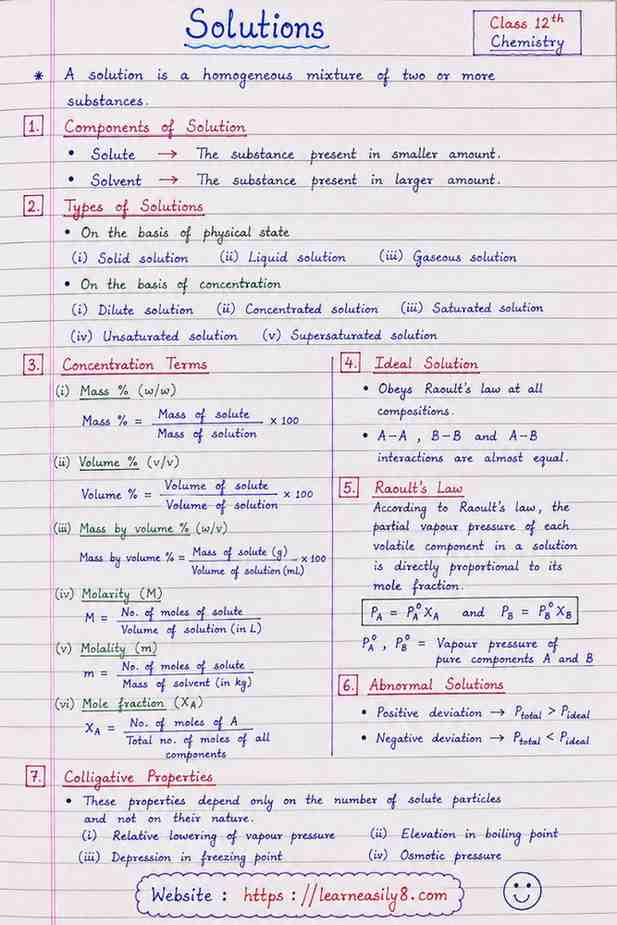 Solutions
Class 12th
Chemistry
* A solution is a homogeneous mixture of two or more
substances.
1. Components of Solution
• Solute → The substance present in smaller amount.
• Solvent → The substance present in larger amount.
2. Types of Solutions
• On the basis of physical state
(i) Solid solution (ii) Liquid solution (iii) Gaseous solution
• On the basis of concentration
(i) Dilute solution (ii) Concentrated solution (iii) Saturated solution
(iv) Unsaturated solution (v) Supersaturated solution
3. Concentration Terms
(i) Mass % (w/w)
Mass % = Mass of solute / Mass of solution × 100
(ii) Volume % (v/v)
Volume % = Volume of solute / Volume of solution × 100
(iii) Mass by volume % (w/v)
Mass by volume % = Mass of solute (g) / Volume of solution (mL) × 100
(iv) Molarity (M)
M = No. of moles of solute / Volume of solution (in L)
(v) Molality (m)
m = No. of moles of solute / Mass of solvent (in kg)
(vi) Mole fraction (X_A)
X_A = No. of moles of A / Total no. of moles of all
components
4. Ideal Solution
• Obeys Raoult's law at all
compositions.
• A–A , B–B and A–B
interactions are almost equal.
5. Raoult's Law
According to Raoult's law, the
partial vapour pressure of each
volatile component in a solution
is directly proportional to its
mole fraction.
P_A = P_A^o X_A and P_B = P_B^o X_B
P_A^o , P_B^o = Vapour pressure of
pure components A and B
6. Abnormal Solutions
• Positive deviation → P_total > P_ideal
• Negative deviation → P_total < P_ideal
7. Colligative Properties
• These properties depend only on the number of solute particles
and not on their nature.
(i) Relative lowering of vapour pressure (ii) Elevation in boiling point
(iii) Depression in freezing point (iv) Osmotic pressure
Website : https : //learneasily8.com